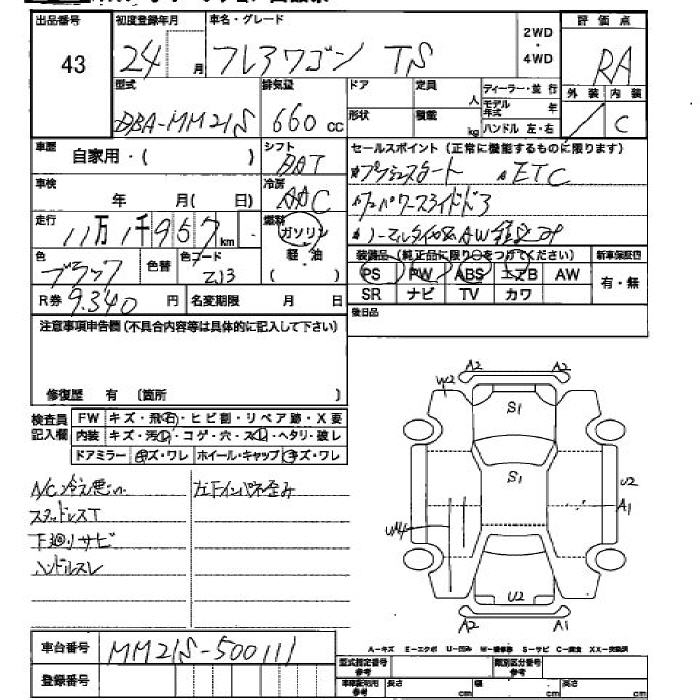 出品番号 43
初度登録年月 24 月
車名・グレード フレアワゴン TS
2WD・4WD
評価点 RA
外装 / 内装 C
型式 DBA-MM21S
排気量 660 cc
ドア 形状
定員 人 積載 kg
ディーラー・並行
モデル年式 年
ハンドル 左・右
車歴 自家用・( )
シフト
冷房 AAC
車検 年 月( 日)
走行 11万1千957km
燃料 ガソリン 軽油 ( )
色 ブラック 色替 色コード ZJ3
R券 9,340 円 名変期限 月 日
セールスポイント (正常に機能するものに限ります)
プッシュスタート ETC
装備品 (純正品に限り○をつけてください)
新車保証書 有・無
PS PW ABS エアB AW
SR ナビ TV カワ
後日品
注意事項申告欄 (不具合内容等は具体的に記入して下さい)
修復歴 有 〔箇所 〕
検査員記入欄
FW キズ・飛石・ヒビ割・リペア跡・X要
内装 キズ・汚れ・コゲ・穴・スレ・ヘタリ・破レ
ドアミラー キズ・ワレ ホイール・キャップ キズ・ワレ
A/C冷え悪い 左下インパネ歪み
スタッドレスT
下廻りサビ
ハンドルスレ
A2 A2
W2
S1
S1
U2
A1
U2
A2 A1
車台番号 MM21S-500111
登録番号
A-キズ E-エクボ U-凹み W-補修跡 S-サビ C-腐食 XX-交換済
型式指定番号 参考
類別区分番号 参考
車庫証明用 参考 長さ cm 幅 cm 高さ cm